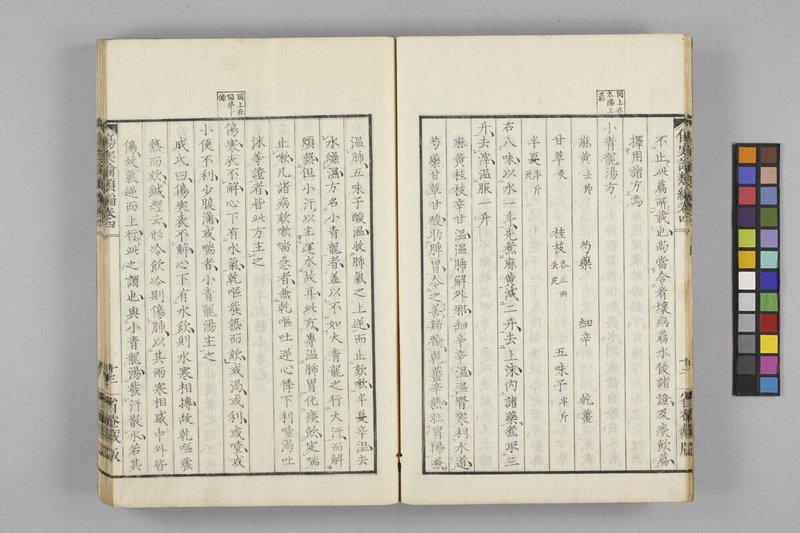 不止此篇所載也尚當合看壞病篇水後諸證及痰飲篇
擇用諸方焉
小青龍湯方
麻黃去節 芍藥 細辛 乾薑
甘草炙 桂枝各三兩去皮 五味子半斤
半夏半斤洗
右八味以水一斗先煮麻黃減二升去上沫內諸藥煮取三
升去滓溫服一升
麻黃桂枝辛甘溫溫肺解外邪細辛辛溫溫腎寒利水道
芍藥甘草甘酸助脾胃令之善歸輸乾薑辛熱壯胃陽無
溫肺五味子酸溫收肺氣之上逆而止欬嗽半夏辛溫去
水燥濕方名小青龍者蓋以不如大青龍之行大汗而解
煩熱但小汗以主運水故耳此方專溫肺胃化痰飲定喘
止嗽凡諸病欬嗽喘急者無乾嘔吐逆心悸下利噎濁吐
沫等證者皆此方主之
傷寒表不解心下有水氣乾嘔發熱而欬或渴或利或噎或
小便不利少腹滿或喘者小青龍湯主之
成氏曰傷寒表不解心下有水飲則水寒相搏故乾嘔發
熱而欬鍼經云形冷飲冷則傷肺以其兩寒相感中外皆
傷故氣逆而上行此之謂也與小青龍湯發汗散水若其
傷寒論類編卷四